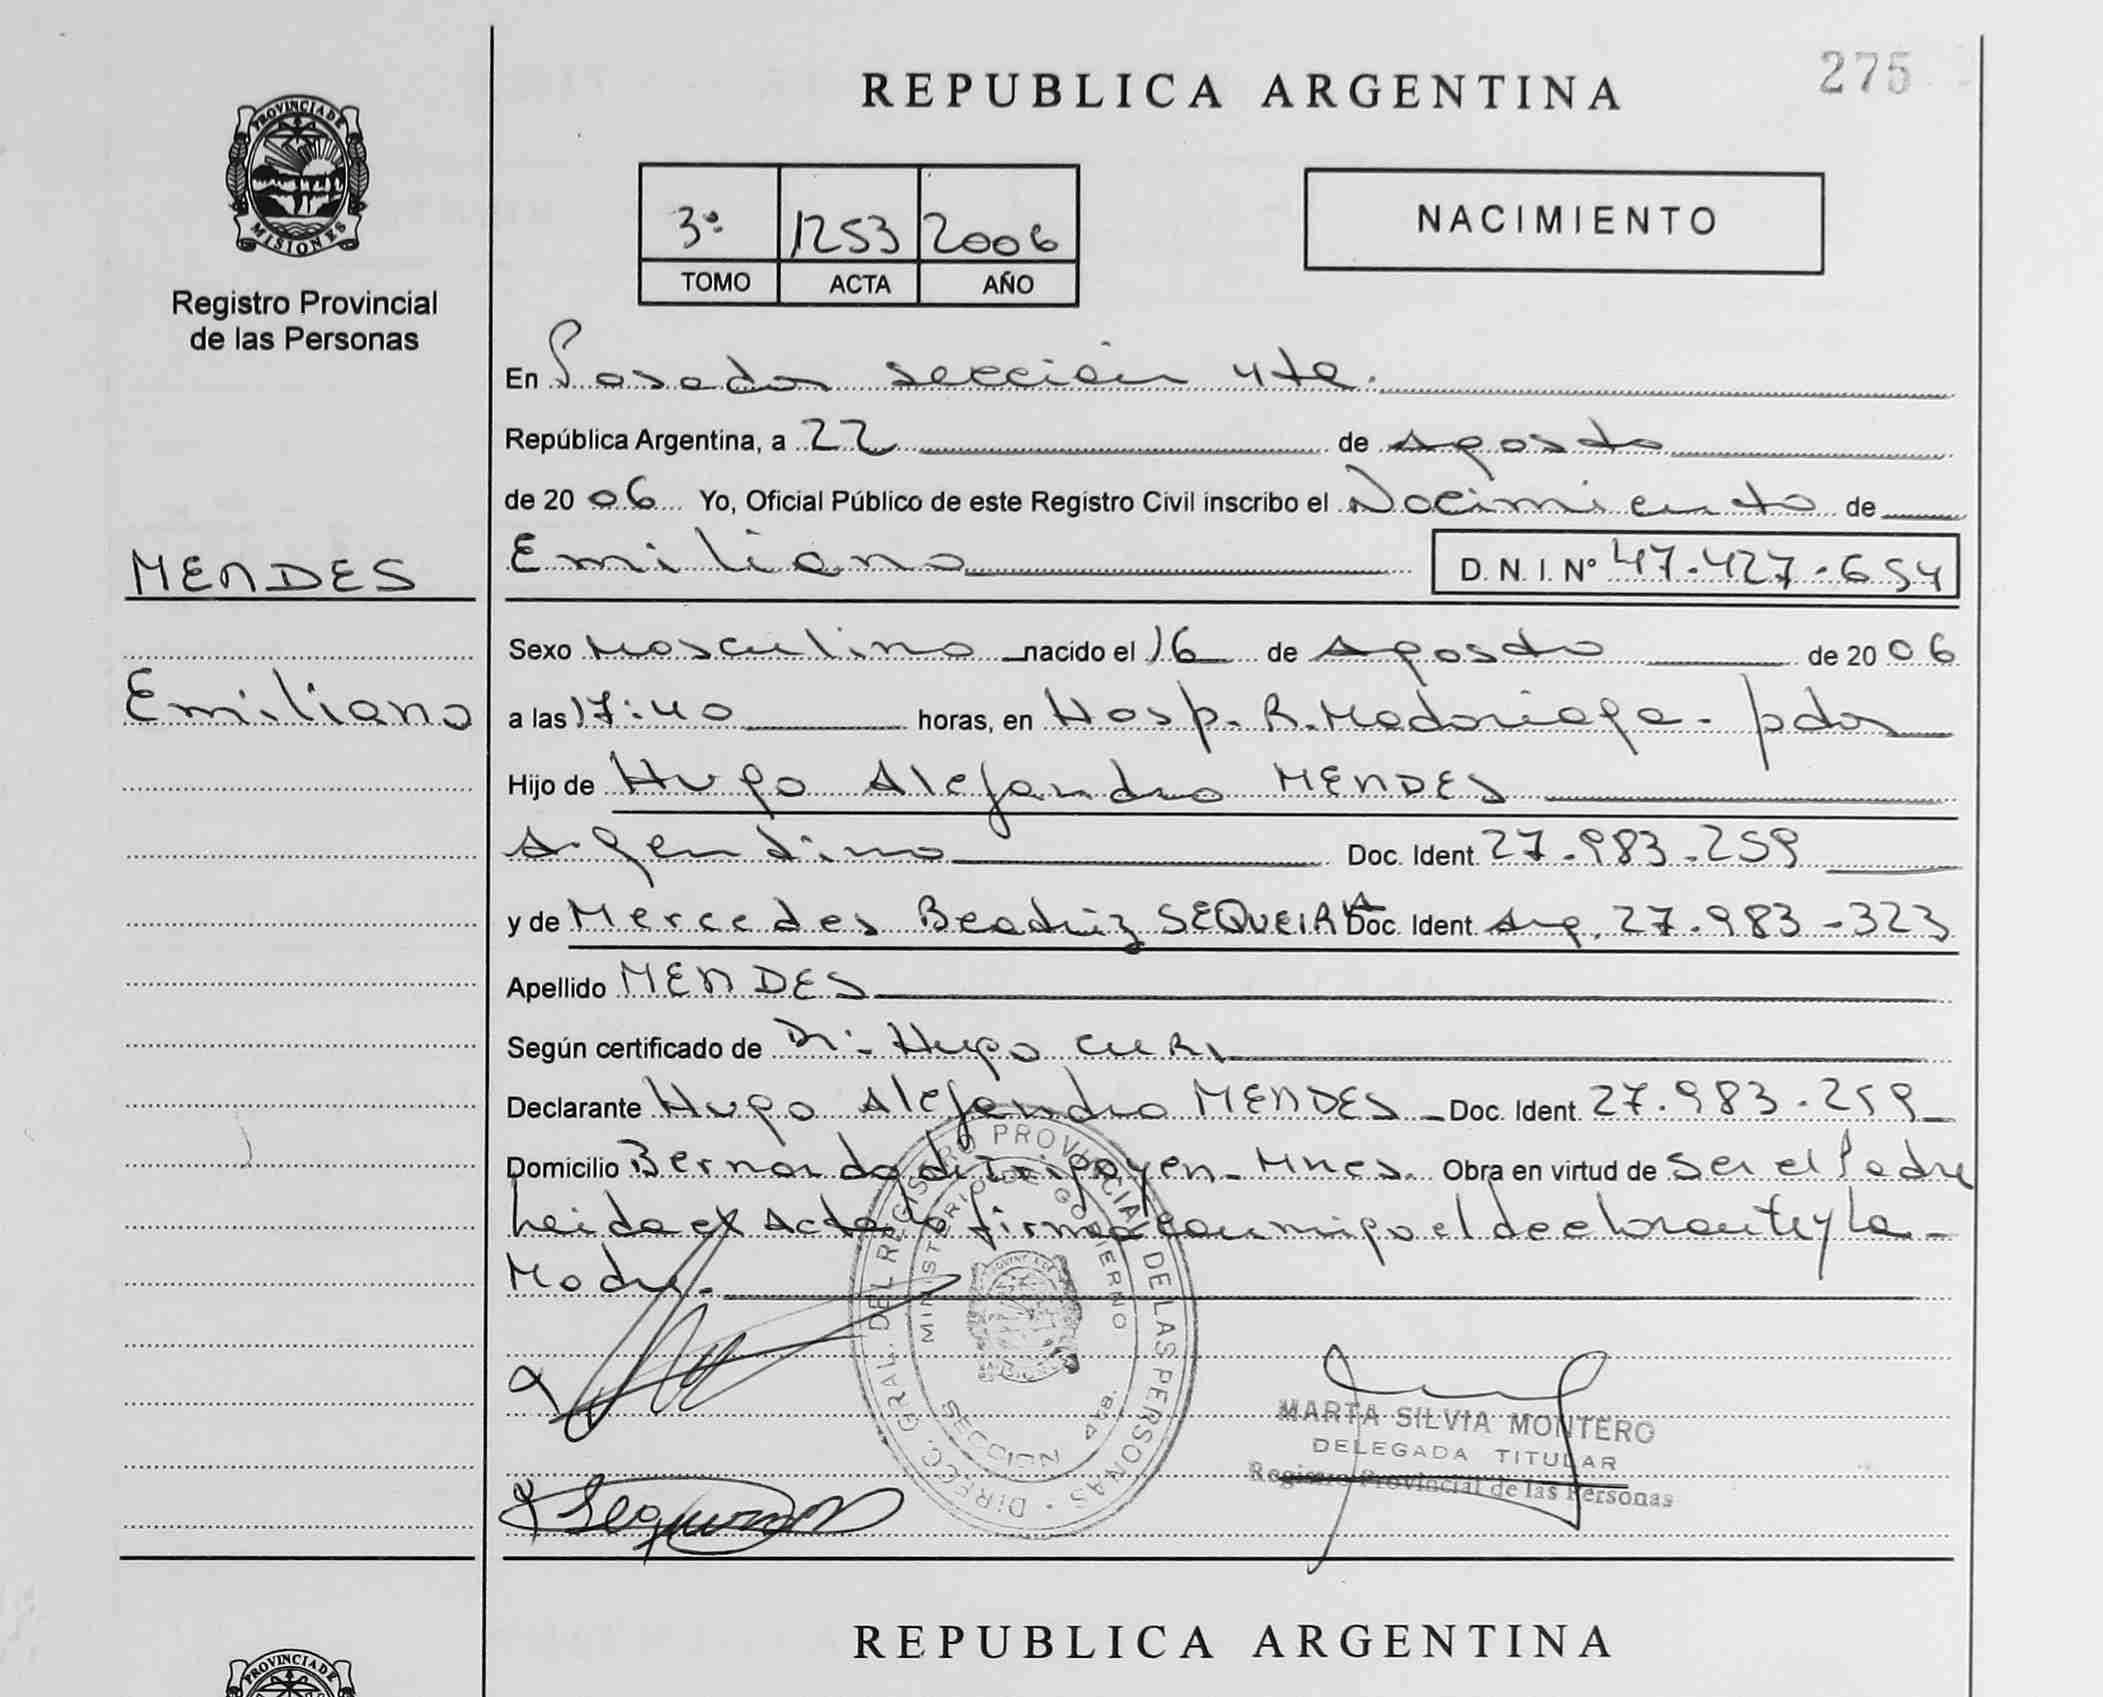 275
REPUBLICA ARGENTINA
PROVINCIA DE
MISIONES
Registro Provincial
de las Personas
3º 1253 2006
TOMO ACTA AÑO
NACIMIENTO
En Posadas sección 4ta.
República Argentina, a 22 de Agosto
de 2006 Yo, Oficial Público de este Registro Civil inscribo el Nacimiento de
MENDES
Emiliano D.N.I. Nº 47.427.654
Sexo Masculino nacido el 16 de Agosto de 2006
Emiliano
a las 17:40 horas, en Hosp. R. Madariaga - pdas
Hijo de Hugo Alejandro MENDES
Argentino Doc. Ident. 27.983.259
y de Mercedes Beatriz SEQUEIRA Doc. Ident. Arg. 27.983-323
Apellido MENDES
Según certificado de Dr. Hugo CURI
Declarante Hugo Alejandro MENDES Doc. Ident. 27.983.259
Domicilio Bernardo de Irigoyen - Mnes. Obra en virtud de ser el Padre
Leida el Acta la firma conmigo el declarante y la -
Madre.
DIRECC. GRAL. DEL REGISTRO PROVINCIAL DE LAS PERSONAS
MINISTERIO DE GOBIERNO
SECCION 4TA.
MARTA SILVIA MONTERO
DELEGADA TITULAR
Registro Provincial de las Personas
Sequeira
REPUBLICA ARGENTINA
PROVINCIA DE